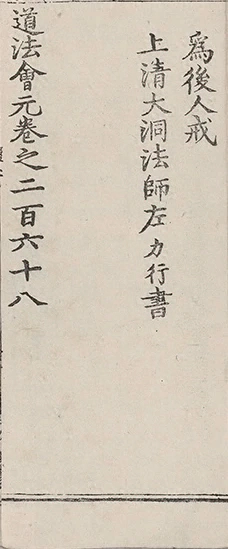 爲後人戒
上清大洞法師左力行書
道法會元卷之二百六十八